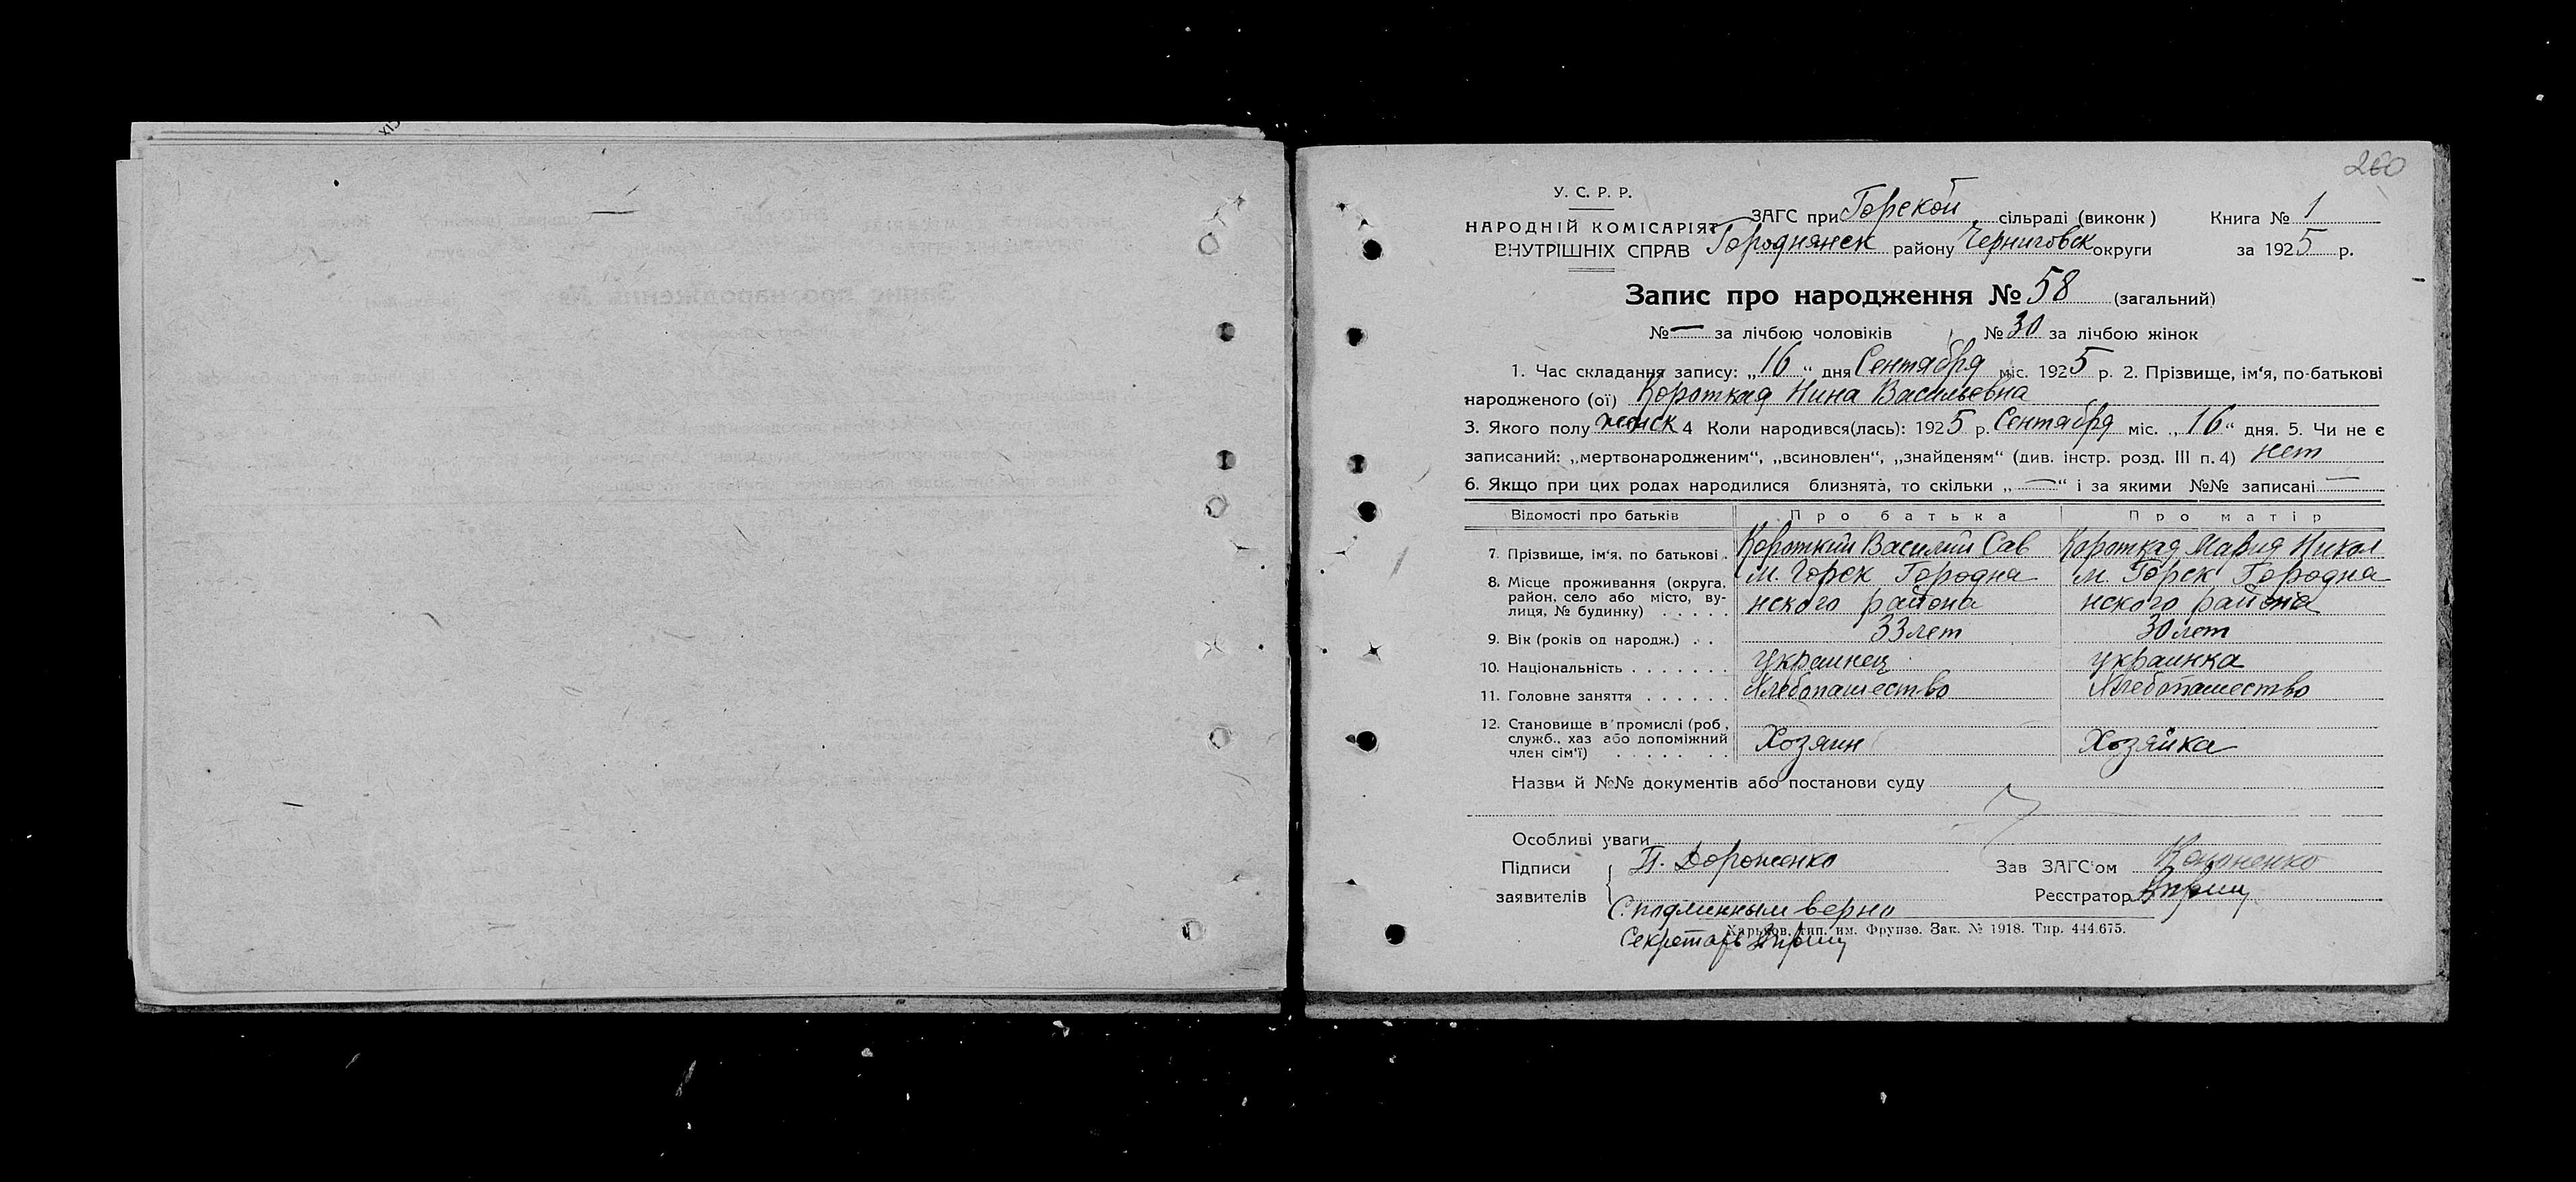 260
У. С. Р. Р.
НАРОДНІЙ КОМІСАРІЯТ
ВНУТРІШНІХ СПРАВ
ЗАГС при Горской сільраді (виконк) Книга № 1
Городнянск району Черниговск округи за 1925 р.
Запис про народження № 58 (загальний)
№ — за лічбою чоловіків № 30 за лічбою жінок
1. Час складання запису: „16“ дня Сентября міс. 1925 р. 2. Прізвище, ім‘я, по-батькові
народженого (ої) Короткая Нина Васильевна
3. Якого полу женск 4 Коли народився(лась): 1925 р. Сентября міс. „16“ дня. 5. Чи не є
записаний: „мертвонародженим“, „всиновлен“, „знайденям“ (див. інстр. розд. III п. 4) нет
6. Якщо при цих родах народилися близнята, то скільки „—“ і за якими №№ записані —
Відомості про батьків Про батька Про матір
7. Прізвище, ім‘я, по батькові . Короткий Василий Сав Короткая Мария Никол
8. Місце проживання (округа, район, село або місто, ву- м. Горск Городня м. Горск Городня
лиця, № будинку) . . . . . нского района нского района
9. Вік (років од народж.) . . 33 лет 30 лет
10. Національність . . . . . . . украинец украинка
11. Головне заняття . . . . . . Хлебопашество Хлебопашество
12. Становище в промислі (роб.,
служб., хаз або допоміжний Хозяин Хозяйка
член сім‘ї) . . . . . . .
Назви й №№ документів або постанови суду
Особливі уваги
Підписи П. Дороженко Зав ЗАГС‘ом
заявителів Реєстратор
С подлинным верно
Харьков, тип. им. Фрунзе. Зак. № 1918. Тир. 444.675.
Секретарь